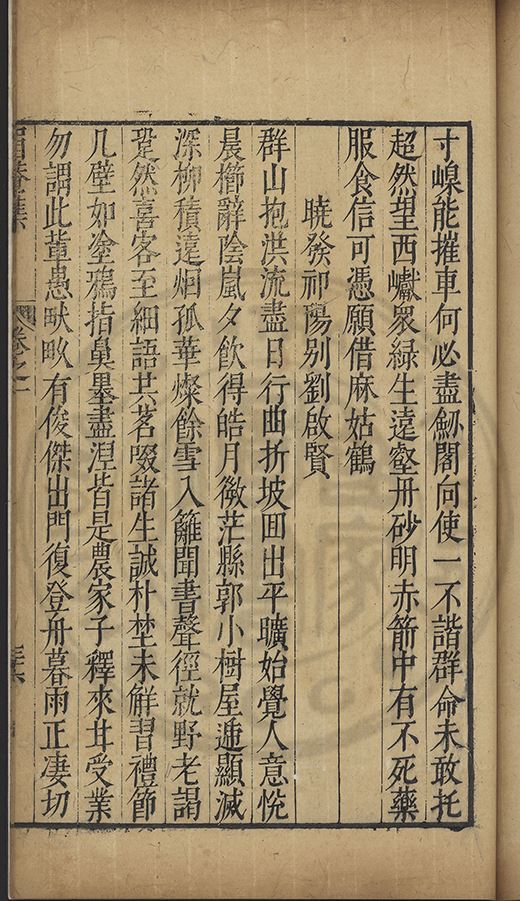 寸嵲能摧車何必盡劒閣向使一不諧群命未敢托
超然望西巘眾緑生遠壑丹砂明赤箭中有不死藥
服食信可憑願借麻姑鶴
曉發祁陽別劉啟賢
群山抱洪流盡日行曲折坡囬出平曠始覺人意悅
晨櫛辭陰嵐夕飲得皓月微茫縣郭小樹屋遞顯滅
深柳積遠烟孤華燦餘雪入籬聞書聲徑就野老謁
跫然喜客至細語共茗啜諸生誠朴埜未觧習禮節
几壁如塗鴉指鼻墨盡涅皆是農家子釋來廿受業
勿謂此軰愚畎畝有俊傑出門復登舟暮雨正凄切
卷之一